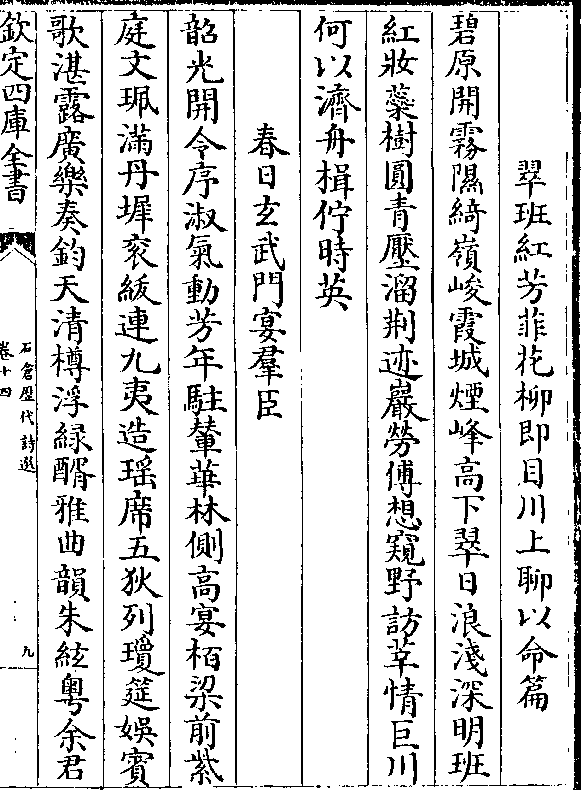 翠班紅芳菲花柳即目川上聊以命篇
碧原開霧隰綺嶺峻霞城煙峰高下翠日浪淺深明班
紅妝蘂樹圓青壓溜荆迹巖勞傅想窺野訪莘情巨川
何以濟舟楫佇時英
春日玄武門宴羣臣
韶光開令序淑氣動芳年駐輦華林側高宴栢梁前紫
庭文珮滿丹墀衮紱連九夷造瑶席五狄列瓊筵娛賓
歌湛露廣樂奏鈞天清樽浮緑醑雅曲韻朱絃粤余君
欽定四庫全書
石倉歴代詩選
卷十四
九